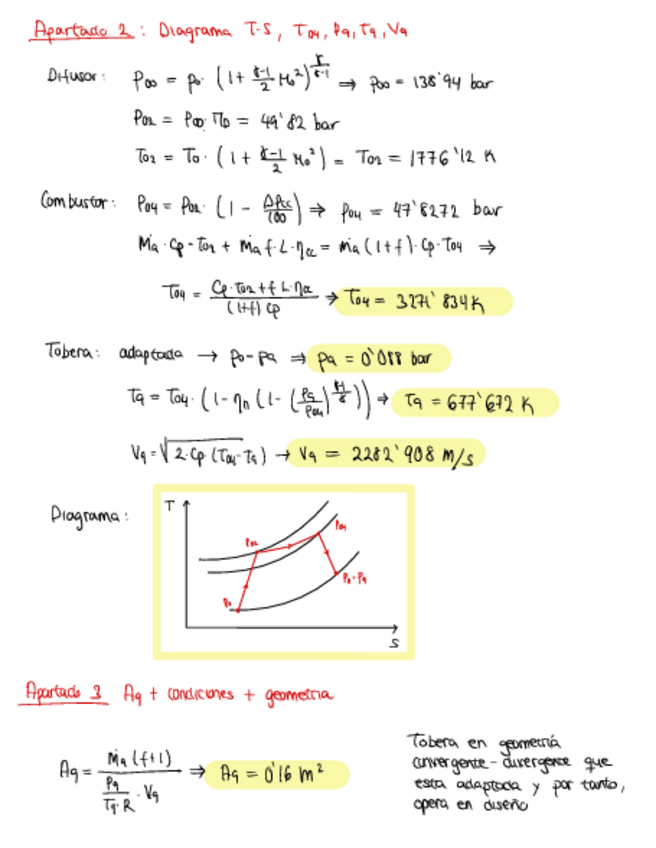 Apartado 2 : Diagrama T-S, T04, P9, T9, V9
Difusor: P00 = P0 · (1 + γ-1/2 M0²)^γ/γ-1 ⇒ P00 = 138'94 bar
P02 = P00 · ΠD = 49'82 bar
T02 = T0 · (1 + γ-1/2 M0²) = T02 = 1776'12 K
Combustor: P04 = P02 · (1 - ΔPcc/100) ⇒ P04 = 47'8272 bar
ṁa · Cp · T02 + ṁa f · L · ηcc = ṁa (1+f) · Cp · T04 ⇒
T04 = Cp · T02 + f L · ηcc / (1+f) Cp ⇒ T04 = 3271'834 K
Tobera: adaptada → P0 = P9 ⇒ P9 = 0'088 bar
T9 = T04 · (1 - ηn (1 - (P9/P04)^γ-1/γ)) ⇒ T9 = 677'672 K
V9 = √2 · Cp (T04 - T9) → V9 = 2282'908 m/s
Diagrama:
T
P02
P04
P0
P0 = P9
S
Apartado 3 A9 + condiciones + geometria
A9 = ṁa (f+1) / P9/T9·R · V9 ⇒ A9 = 0'16 m²
Tobera en geometría
convergente-divergente que
esta adaptada y por tanto,
opera en diseño